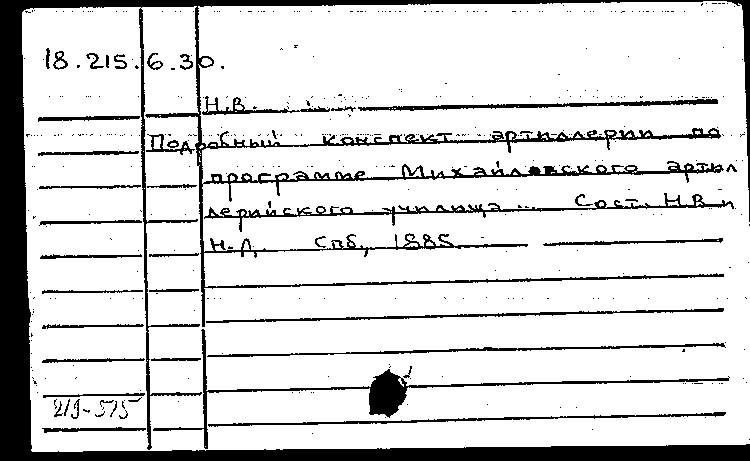 18.215.6.30.
Н.В.
Подробный конспект артиллерии по
программе Михайловского артил
лерийского училища ... Сост. Н.В и
Н.Д. Спб, 1885
219-575